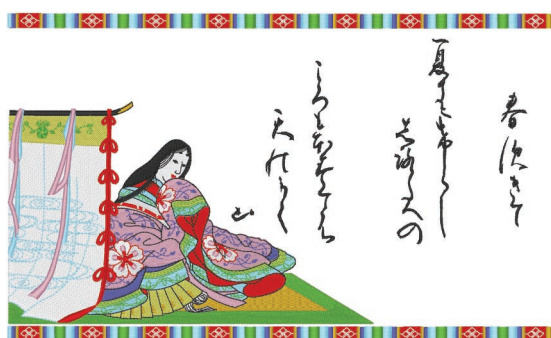 春すきて
夏きにけらし
しろたへの
ころもほすてふ
天のかく
山